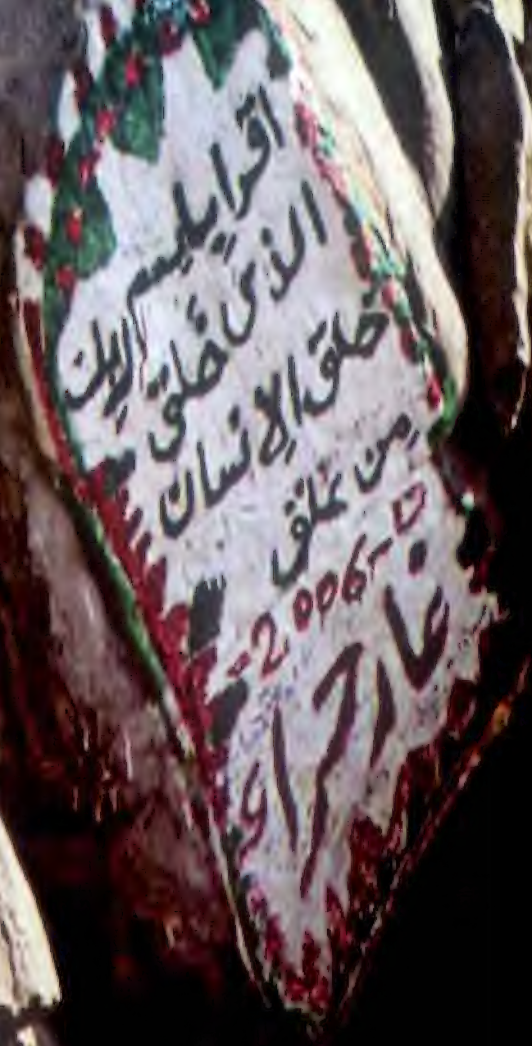 اقرا بإسم ربك
الذى خلق
خلق الإنسان
من علق
-2006-
غار حراء